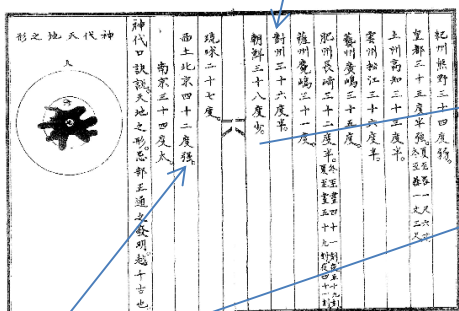 紀州熊野三十四度弱。
皇都三十五度半強。夏至昼一尺六寸 冬至昼一丈二尺
土州高知三十三度半。
雲州松江三十六度半。
藝州廣嶋三十五度。
肥州長崎三十二度半。冬至昼四十一刻 夏至昼五十九刻
薩州鹿嶋三十一度。
對州三十六度半。
朝鮮三十八度少。
琉球二十七度。
西土北京四十二度強。
南京三十四度太。
神代口訣説天地之形忌部正通之發明越千古也
神代天地之形
天